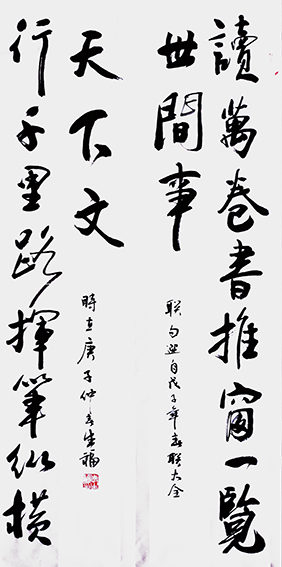 讀萬卷書推窗一覽
世間事
聯句選自戊子年春聯大全
行千里路揮筆縱橫
天下文
時在庚子仲春福